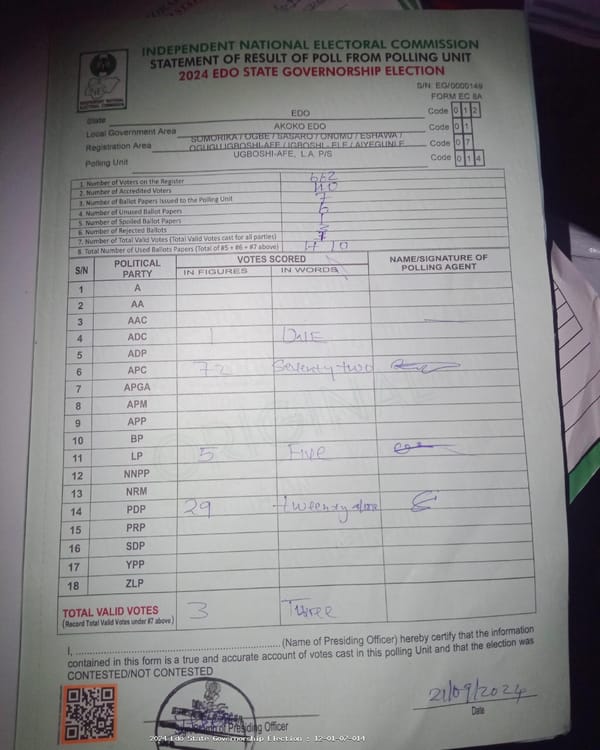 INDEPENDENT NATIONAL ELECTORAL COMMISSION
STATEMENT OF RESULT OF POLL FROM POLLING UNIT
2024 EDO STATE GOVERNORSHIP ELECTION
S/N: EG/0000149
FORM EC 8A
State EDO Code 1 2
Local Government Area AKOKO EDO Code 0 1
Registration Area SOMORIKA / OGBE / SASARO / ONUMU / ESHAWA / OGUGU IGBOSHI-AFE / IGBOSHI - ELE / AIYEGUNLE Code 0 7
Polling Unit UGBOSHI-AFE, L.A. P/S Code 0 1 4
1. Number of Voters on the Register 662
2. Number of Accredited Voters 110
3. Number of Ballot Papers Issued to the Polling Unit
4. Number of Unused Ballot Papers
5. Number of Spoiled Ballot Papers
6. Number of Rejected Ballots
7. Number of Total Valid Votes (Total Valid Votes cast for all parties)
8. Total Number of Used Ballots Papers (Total of #5 + #6 + #7 above)
S/N POLITICAL PARTY VOTES SCORED NAME/SIGNATURE OF POLLING AGENT
IN FIGURES IN WORDS
1 A
2 AA
3 AAC
4 ADC 1 One
5 ADP
6 APC 72 Seventy two
7 APGA
8 APM
9 APP
10 BP
11 LP 5 Five
12 NNPP
13 NRM
14 PDP 29
15 PRP
16 SDP
17 YPP
18 ZLP
TOTAL VALID VOTES 3 Three
(Record Total Valid Votes under #7 above)
I, (Name of Presiding Officer) hereby certify that the information
contained in this form is a true and accurate account of votes cast in this polling Unit and that the election was
CONTESTED/NOT CONTESTED
21/09/2024
Date
Presiding Officer
2024 Edo State Governorship Election : 12-01-07-014